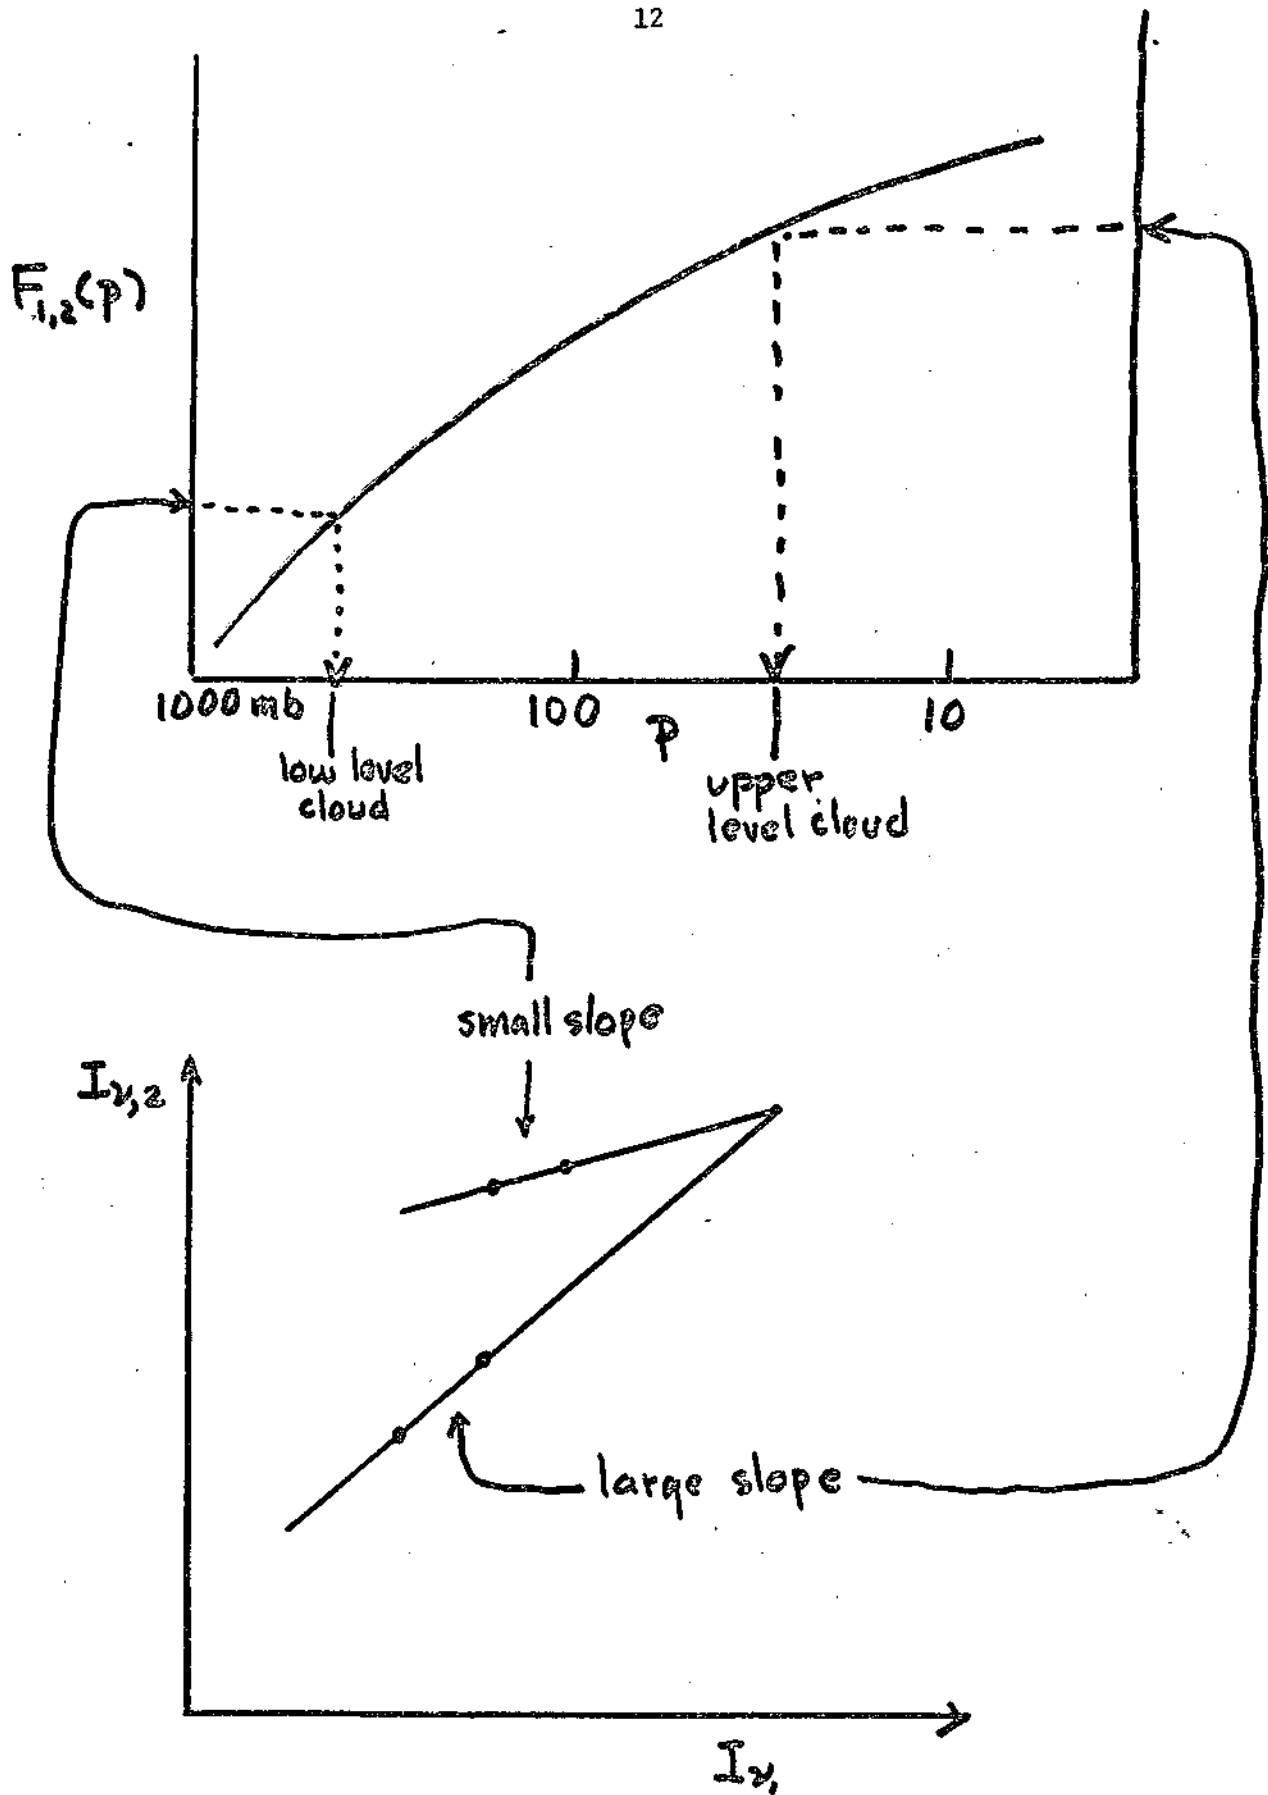 12
F₁,₂(p)
1000 mb 100 p 10
low level
cloud
upper
level cloud
small slope
Iν,2
large slope
Iν,